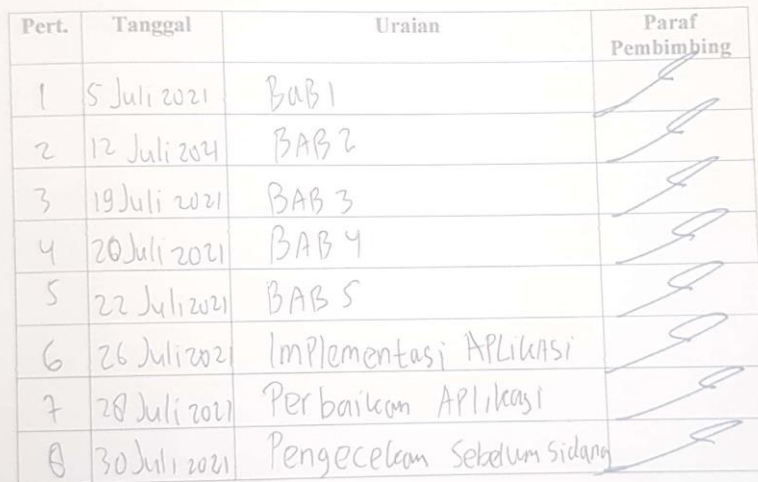 Pert. Tanggal Uraian Paraf Pembimbing
1 5 Juli 2021 BaB 1
2 12 Juli 2021 BAB 2
3 19 Juli 2021 BAB 3
4 20 Juli 2021 BAB 4
5 22 Juli 2021 BAB 5
6 26 Juli 2021 Implementasi Aplikasi
7 28 Juli 2021 Perbaikan Aplikasi
8 30 Juli 2021 Pengecekan Sebelum Sidang